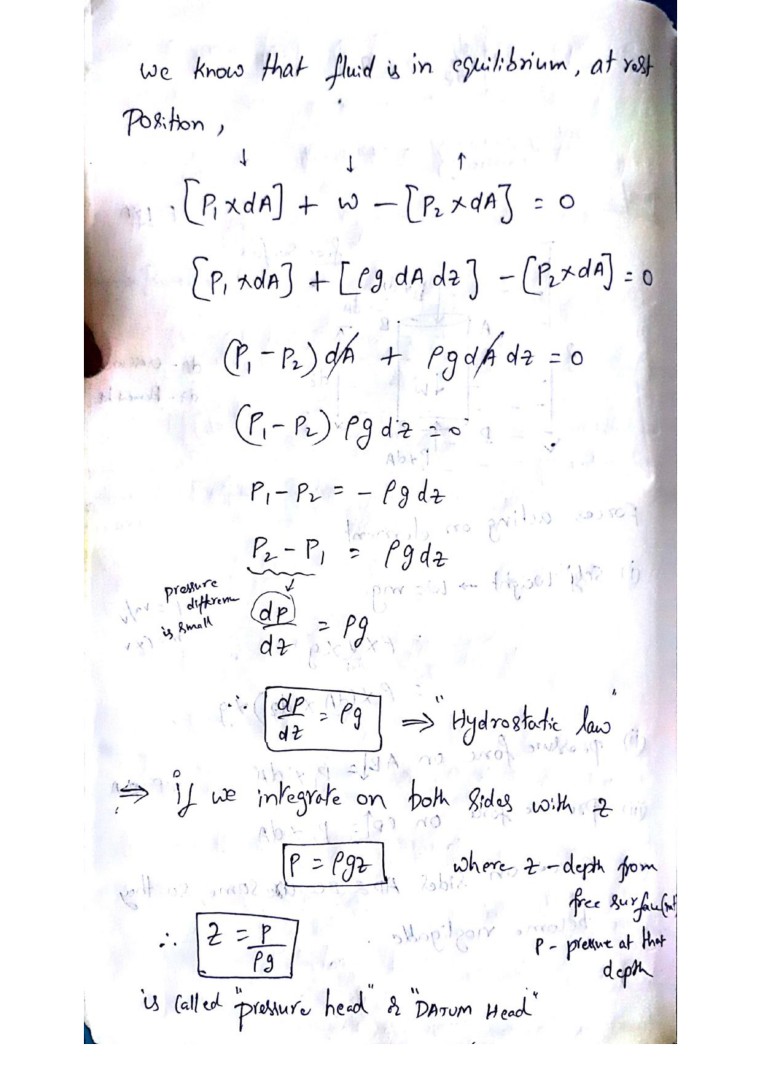 we know that fluid is in equilibrium, at rest
Position,
↓ ↓ ↑
[P₁ x dA] + w - [P₂ x dA] = 0
[P₁ x dA] + [ρg dA dz] - [P₂ x dA] = 0
(P₁ - P₂) dA + ρg dA dz = 0
(P₁ - P₂) ρg dz = 0
P₁ - P₂ = - ρg dz
P₂ - P₁ = ρg dz
pressure
is small
dp/dz = ρg
∴ dp/dz = ρg ⇒ "Hydrostatic law"
⇒ if we integrate on both sides with z
P = ρgz where z - depth from
free surface(m)
∴ z = P/ρg
P - pressure at that
depth
is called "pressure head" & "DATUM Head"